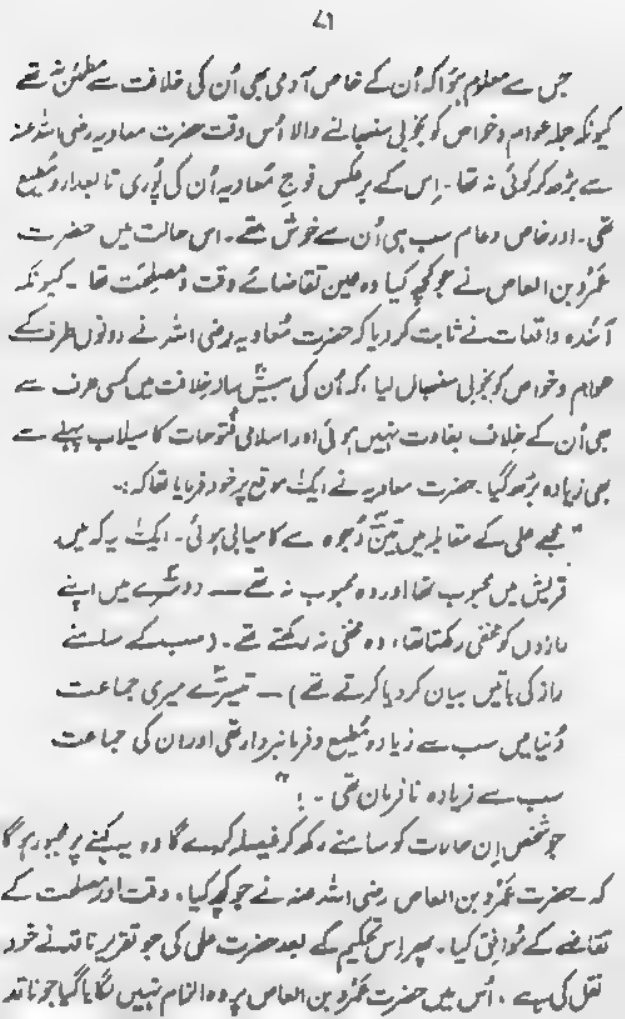 ۷۱
جس سے معلوم ہؤا کہ اُن کے خاص آدمی بھی اُن کی خلافت سے مطمئن نہ تھے
کیونکہ جملہ عوام و خواص کو بخوبی سنبھالنے والا اُس وقت حضرت معاویہ رضی اللہ عنہ
سے بڑھ کر کوئی نہ تھا۔ اِس کے برعکس فوجِ مُعاویہ اُن کی پُوری تابعدار و مُطیع
تھی۔ اور خاص و عام سب ہی اُن سے خوش تھے۔ اس حالت میں حضرت
عَمرُو بن العاص نے جو کچھ کیا وہ عین تقاضائے وقت و مصلحت تھا۔ کیونکہ
آئندہ واقعات نے ثابت کر دیا کہ حضرت مُعاویہ رضی اللہ نے دونوں طرف کے
عوام و خواص کو بخوبی سنبھال لیا، کہ اُن کی بیس سالہ خلافت میں کسی طرف سے
بھی اُن کے خِلاف بغاوت نہیں ہوئی اور اسلامی فُتوحات کا سیلاب پہلے سے
بھی زیادہ بڑھ گیا۔ حضرت معاویہ نے ایک موقع پر خود فرمایا تھا کہ:۔
"مجھے علی کے مقابلہ میں تین وُجوہ سے کامیابی ہوئی۔ ایک یہ کہ میں
قریش میں محبوب تھا اور وہ محبوب نہ تھے — دوسرے میں اپنے
رازوں کو مخفی رکھتا تھا، وہ مخفی نہ رکھتے تھے۔ (سب کے سامنے
راز کی باتیں بیان کر دیا کرتے تھے) — تیسرے میری جماعت
دُنیا میں سب سے زیادہ مُطیع و فرمانبردار تھی اور ان کی جماعت
سب سے زیادہ نافرمان تھی ۔!"
جو شخص اِن حالات کو سامنے رکھ کر فیصلہ کرے گا وہ یہ کہنے پر مجبور ہو گا
کہ حضرت عَمرُو بن العاص رضی اللہ عنہ نے جو کچھ کیا، وقت اور مصلحت کے
تقاضے کے مُوافِق کیا۔ پھر اِس تحکیم کے بعد حضرت علی کی جو تقریر ناقد نے خود
نقل کی ہے۔ اُس میں حضرت عَمرُو بن العاص پر وہ الزام نہیں لگایا گیا جو ناقد